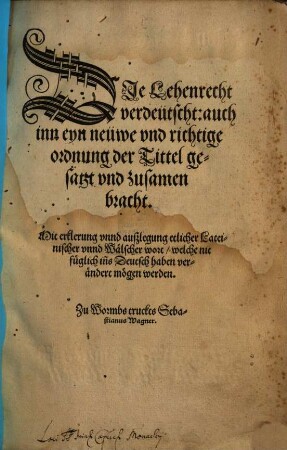 DIe Lehenrecht
verdeutscht: auch
inn eyn neüwe vnd richtige
ordnung der Tittel ge-
satzt vnd zusamen
bracht.
Mit erklerung vnnd außlegung etlicher Latei-
nischer vnnd Wälscher wort / welche nit
füglich iñs Deutsch haben ver-
ändert mögen werden.
Zu Wormbs truckts Seba-
stianus Wagner.